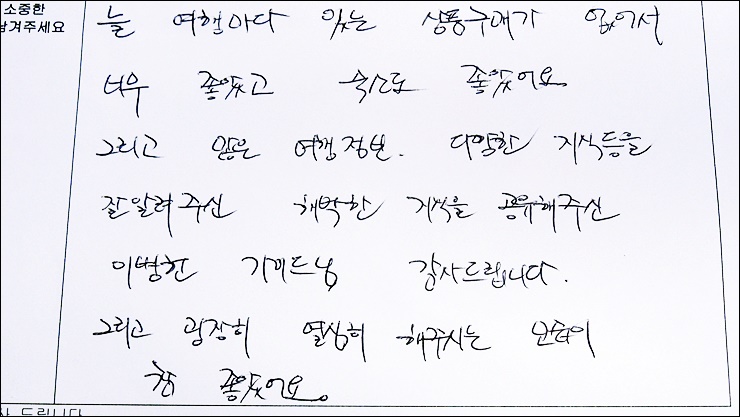 소중한
남겨주세요
늘 여행마다 있는 상품구매가 없어서
너무 좋았고 숙소도 좋았어요.
그리고 많은 여행정보. 다양한 지식등을
잘 알려주신 해박한 지식을 공유해주신
이병헌 가이드님 감사드립니다.
그리고 굉장히 열심히 해주시는 모습이
참 좋았어요.
사 드립니다